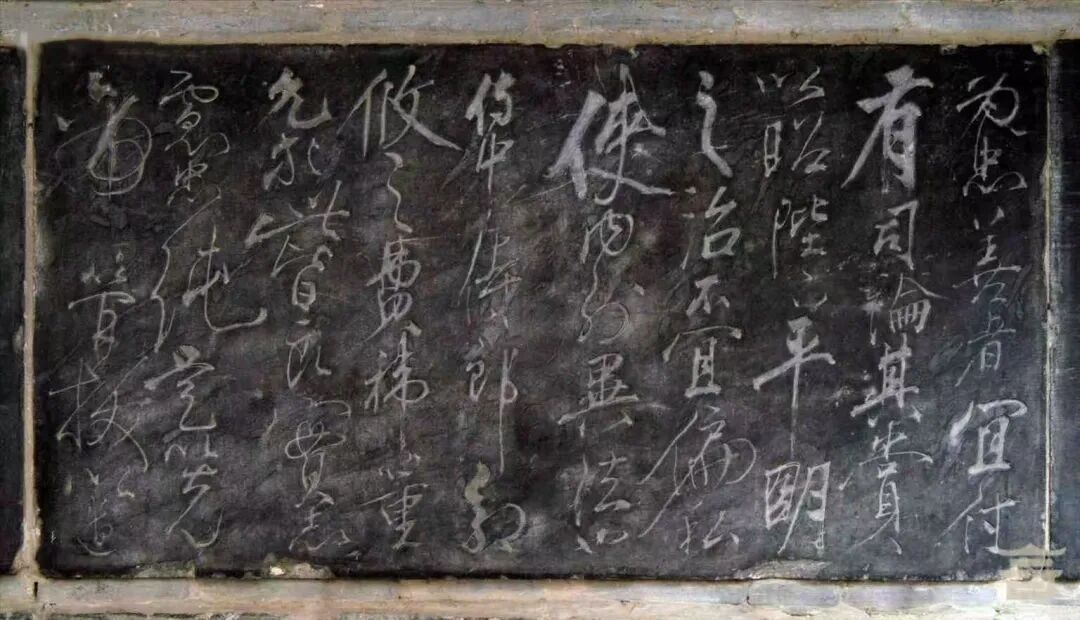 為忠善者宜付
有司論其賞
以昭陛下平明
之治不宜偏私
使內外異法也
侍中侍郎郭
攸之費禕董
允等此皆良實志
慮忠純是以先
帝簡拔以遺